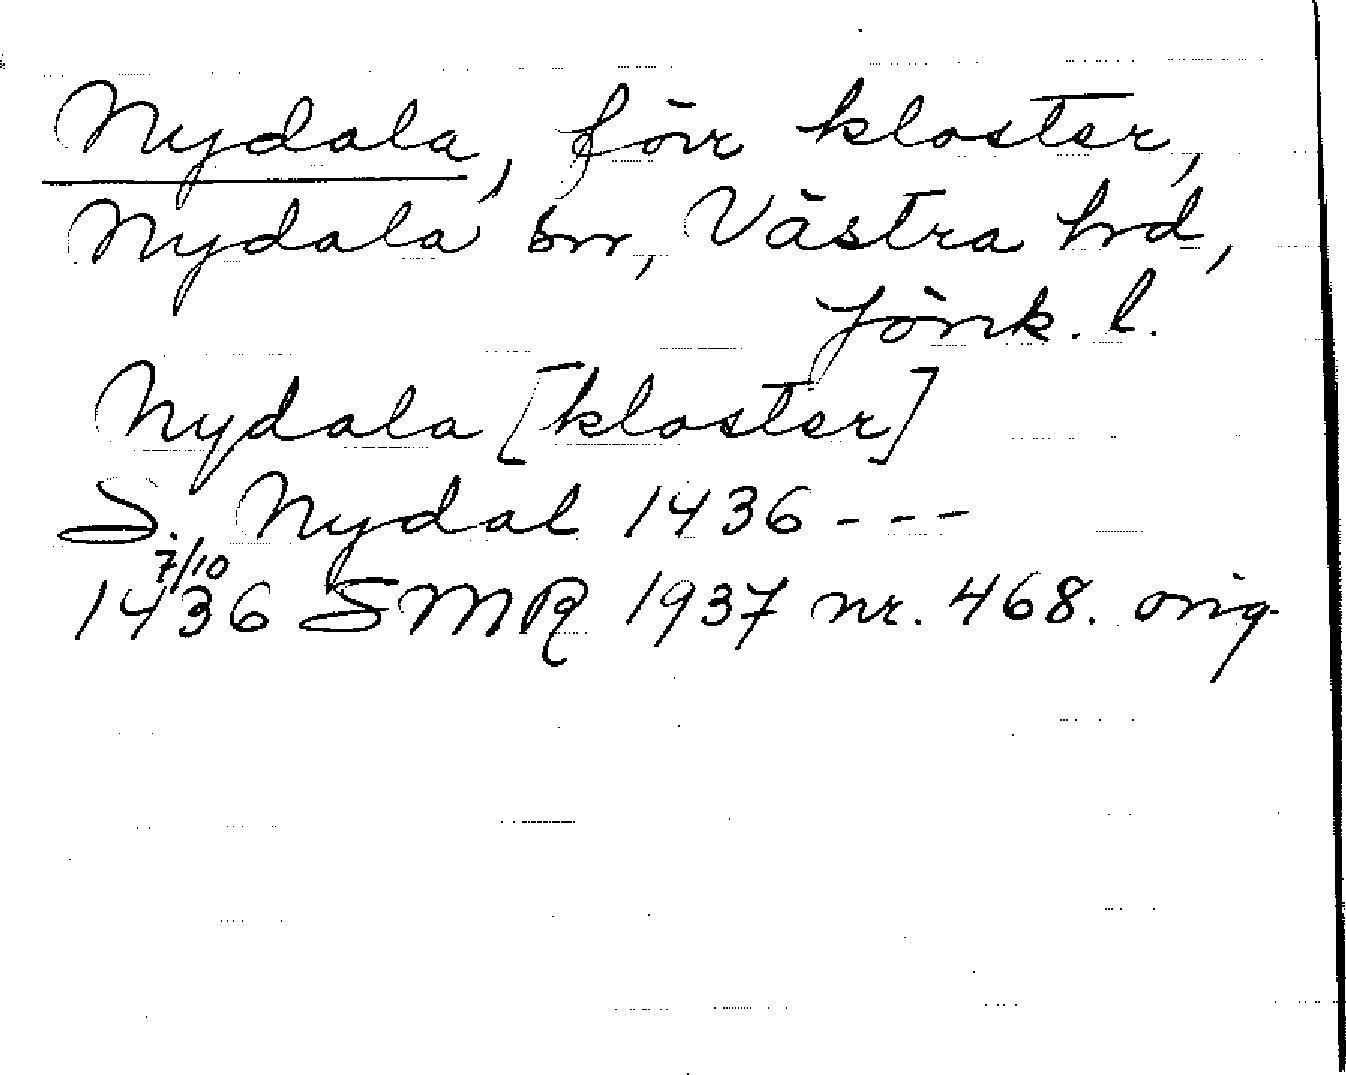 Nydala, förr kloster,
Nydala sn, Västra hd,
Jönk. l.
Nydala [kloster]
S. Nydal 1436 ---
7/10
1436 SMR 1937 nr. 468. orig.